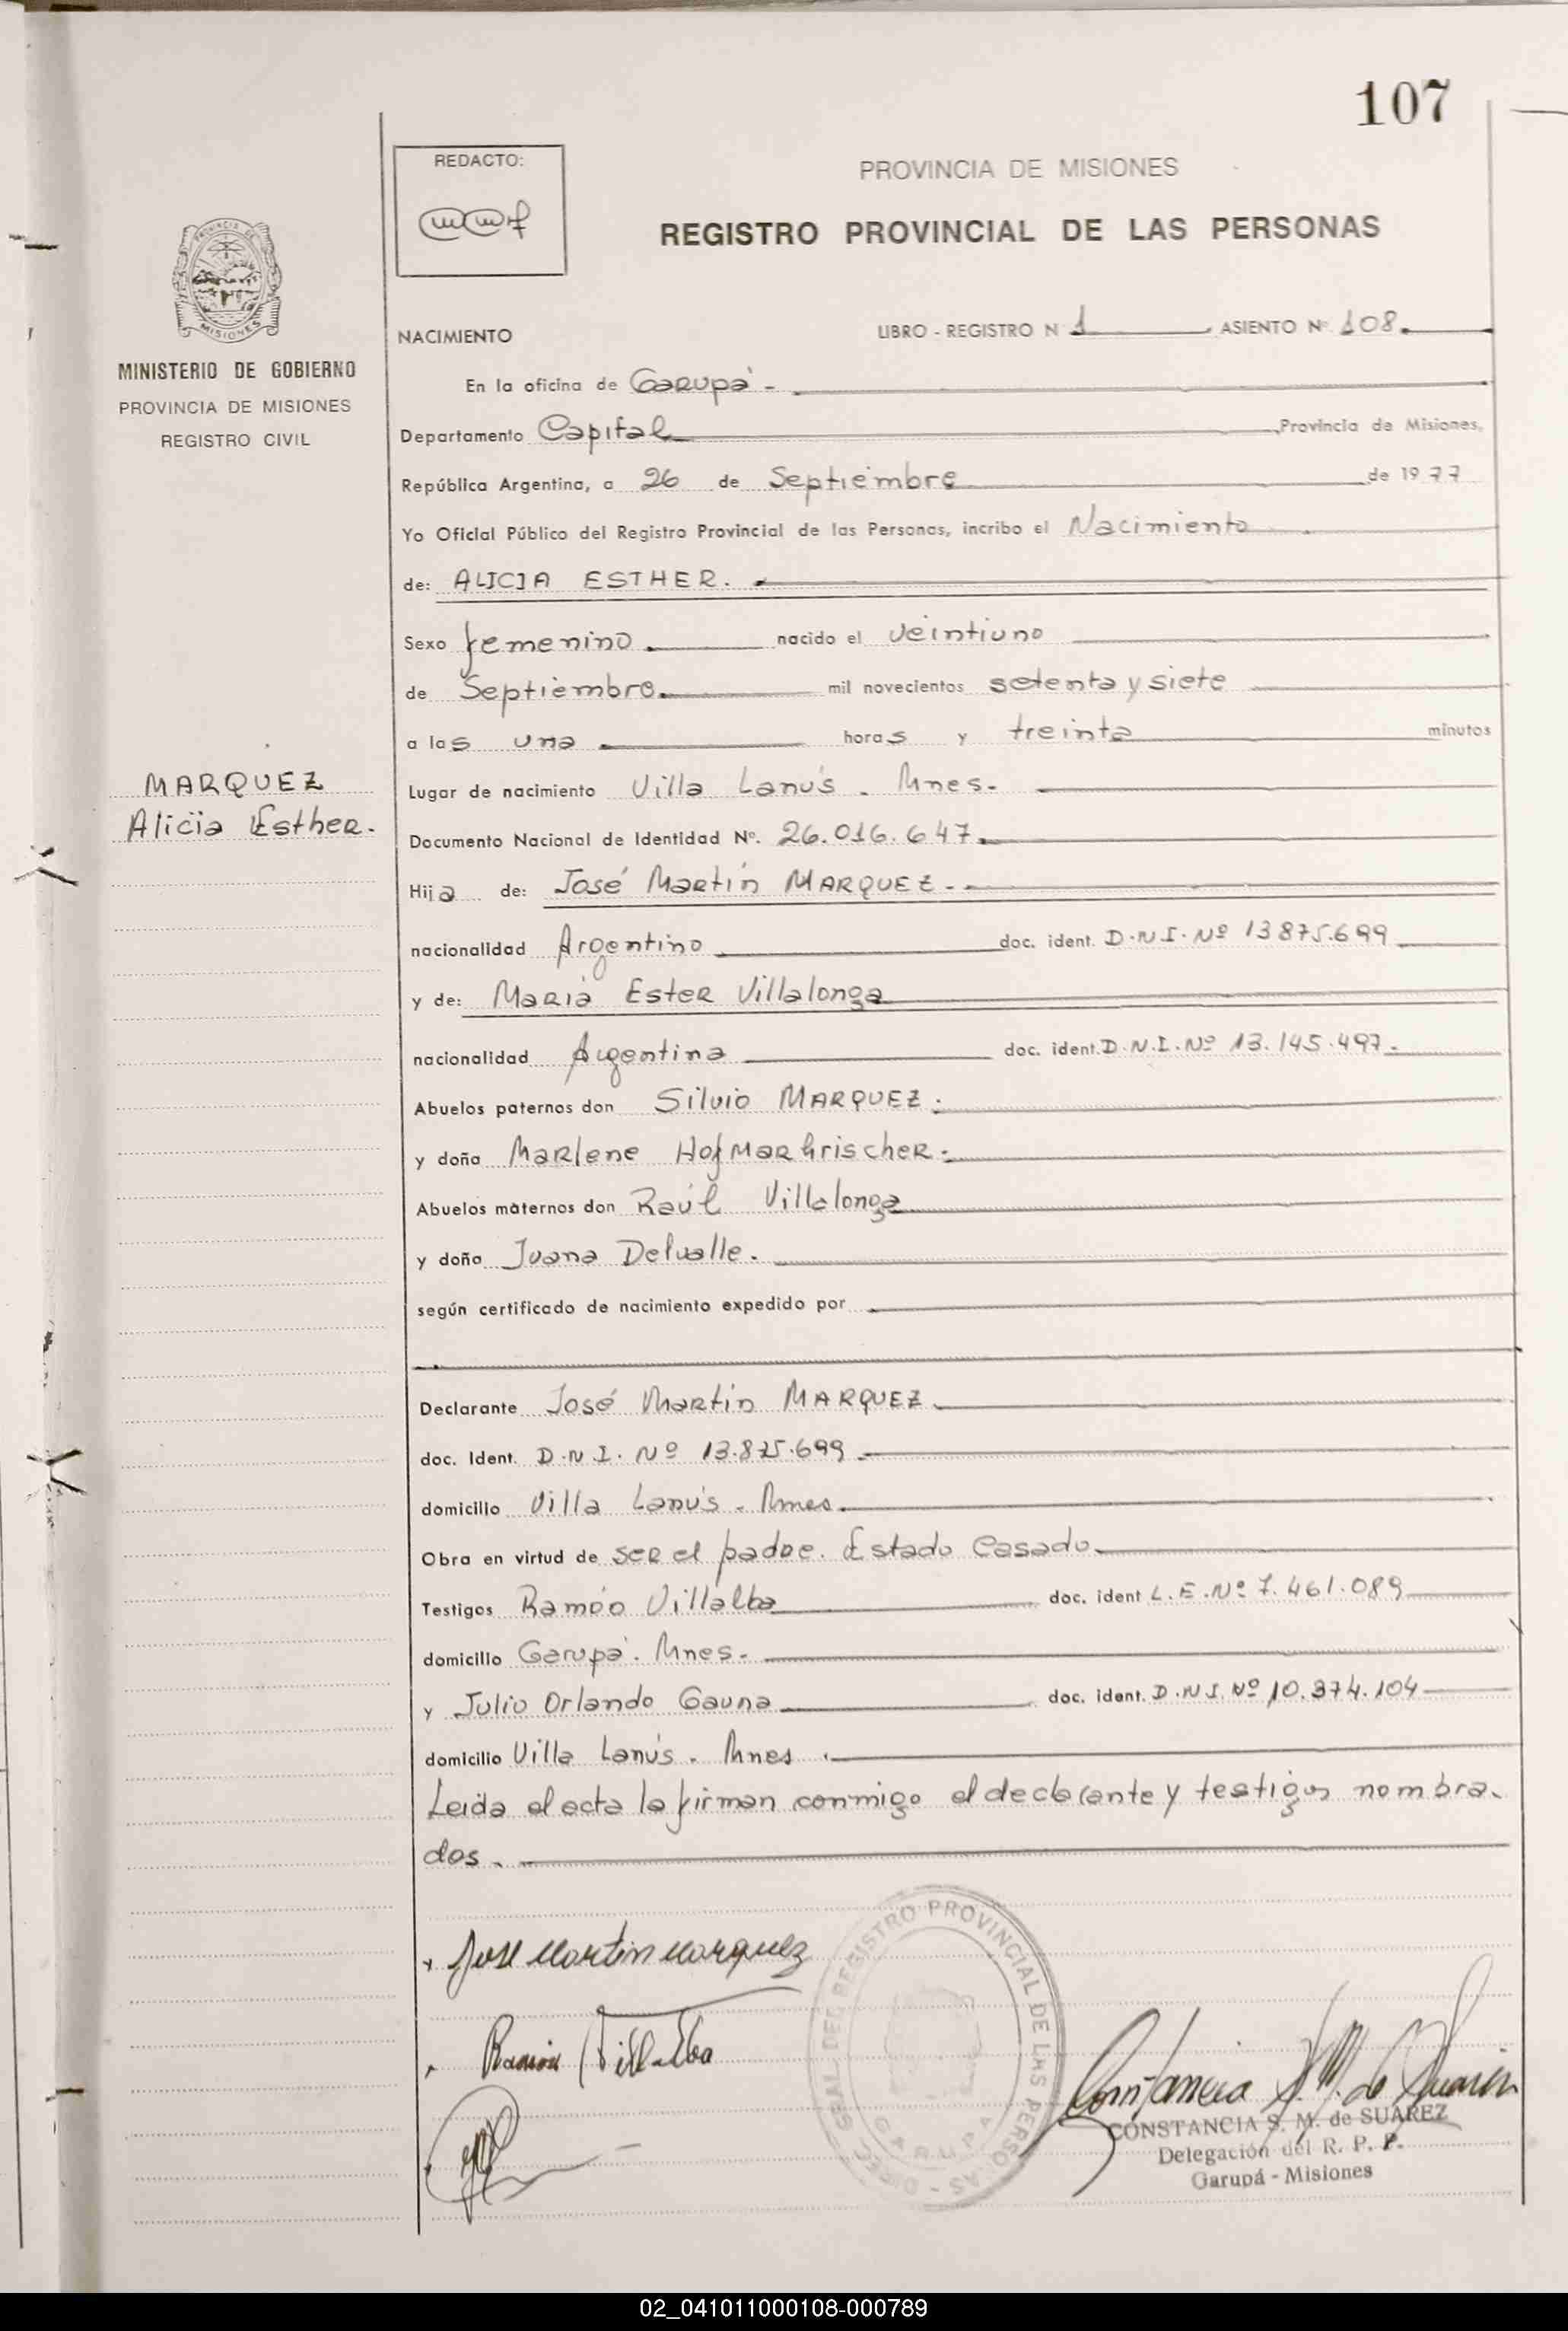 107
REDACTO:
PROVINCIA DE MISIONES
REGISTRO PROVINCIAL DE LAS PERSONAS
PROVINCIA DE
MISIONES
MINISTERIO DE GOBIERNO
PROVINCIA DE MISIONES
REGISTRO CIVIL
MARQUEZ
Alicia Esther.
NACIMIENTO LIBRO - REGISTRO N 1 ASIENTO Nº 108.
En la oficina de Garupá -
Departamento Capital Provincia de Misiones,
República Argentina, a 26 de Septiembre de 1977
Yo Oficial Público del Registro Provincial de las Personas, incribo el Nacimiento
de: ALICIA ESTHER.
Sexo femenino. nacido el veintiuno
de Septiembre. mil novecientos setenta y siete
a las una horas y treinta minutos
Lugar de nacimiento Villa Lanús. Mnes.
Documento Nacional de Identidad Nº. 26.016.647.
Hija de: José Martín MARQUEZ.-
nacionalidad Argentino doc. ident. D.N.I. Nº 13875.699
y de: María Ester Villalonga
nacionalidad Argentina doc. ident. D.N.I. Nº 13.145.497.
Abuelos paternos don Silvio MARQUEZ.
y doña Marlene
Abuelos maternos don Raúl Villalonga
y doña Juana Delvalle.
según certificado de nacimiento expedido por
Declarante José Martín MARQUEZ
doc. Ident. D.N.I. Nº 13.875.699
domicilio Villa Lanús. Mnes.
Obra en virtud de ser el padre. Estado Casado.
Testigos Ramón Villalba doc. ident L.E. Nº 7.461.089
domicilio Garupá. Mnes.
y Julio Orlando Gauna doc. ident. D.N.I. Nº 10.374.104
domicilio Villa Lanús. Mnes.
Leida el acta la firman conmigo el declarante y testigos nombra-
dos.
x Jose Martin Marquez
Ramón Villalba
REGISTRO PROVINCIAL DE LAS PERSONAS
GARUPA
Constancia S. M. de Suarez
CONSTANCIA S. M. de SUAREZ
Delegación del R. P. P.
Garupá - Misiones
02_041011000108-000789